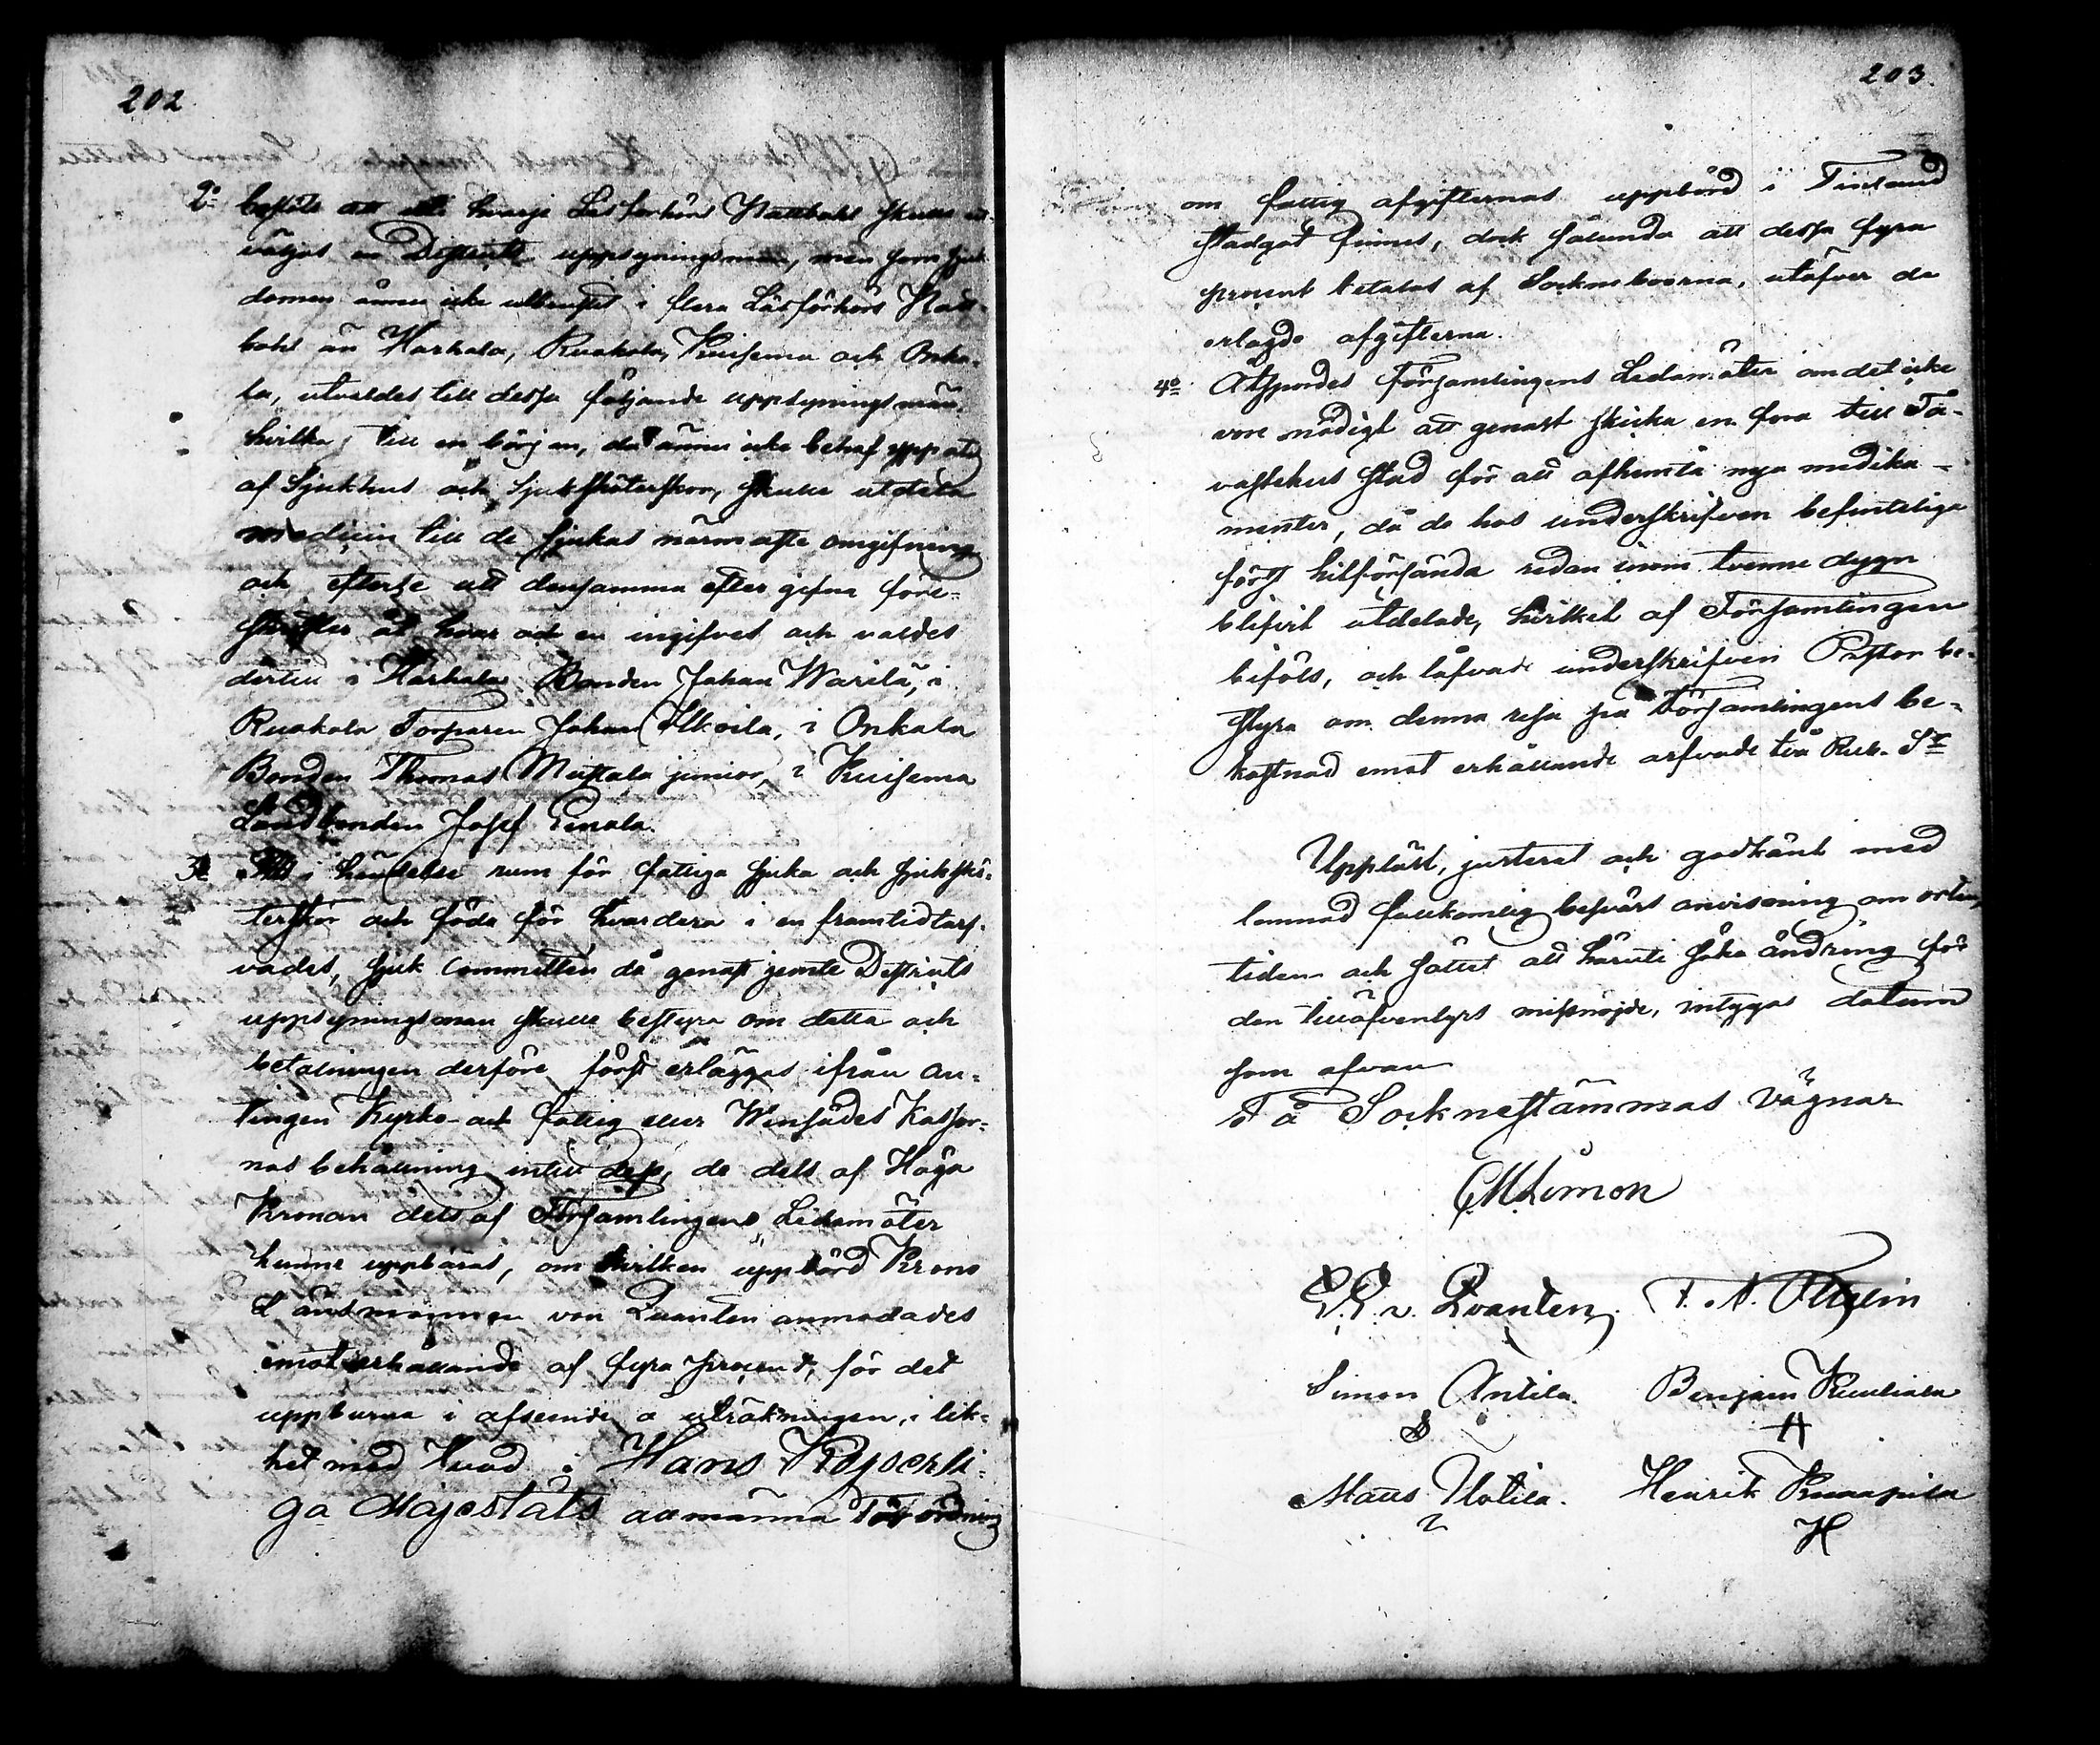 202
2o beslöts att uti hvarje Läsförhörs Matbohl skulle ut-
väljas en Destrikt uppsyningsman, men som sjuk
domen ännu icke utbrustit i flera Läsförhörs Mat-
bohl än Harhala, Ruokola, Kuisema och Onka-
la, utvaldes till dessa följande uppsyningsmän,
hvilka, till en början, då ännu icke behof yppats
af Sjukhus och Sjukskötterskor, skulle utdela
medicin till de sjukas närmaste omgifning
och efterse att densamma efter gifna före-
skrifter åt hvar och en ingifves och valdes
dertill i Harhala Bonden Johan Warila, i
Ruokola Torparen Johan Ilkoila, i Onkala
Bonden Thomas Mustala junior, i Kuisema
Landbonden Josef Einola.
3o Att i händelse rum för fattiga sjuka och sjukskö-
terskor och föda för hvardera i en framtid tarf-
vades, sjuk Committen då genast jemte Destrikts
uppsyningsman skulle bestyra om detta och
betalningen derföre först erläggas ifrån an-
tingen Kyrko- och fattig eller Winsädes Kassor-
nas behållning intill dess, de dels af Höga
Kronan dels af Församlingens Ledamöter
kunne uppbäras, om hvilken uppbörd Krono
Länsmannen von Qvanten anmodades
emot erhållande af fyra procent, för det
uppburna i afseende å uträkningen, i lik-
het med hvad i Hans Kejserli-
ga Majestäts allmänna Förordning
203.
om fattig afgifternas uppbörd i Finland
stadgat finnes, dock sålunda att dessa fyra
procent betalas af Sockneboerna, utöfver de
erlagde afgifterna.
4o Åtspordes Församlingens Ledamöter om det icke
vore nödigt att genast skicka en fora till Ta-
vastehus stad för att afhemta nya medika-
menter, då de hos underskrifven befinteliga
först hitförsända redan inom tvenne dygn
blifvit utdelade, hvilket af Församlingen
biföls, och låfvade underskrifven Pastor be-
styra om denna resa på Församlingens be-
kostnad emot erhållande arfvode två Rub. Sr
Uppläst, justerat och godkänt med
lemnad fullkomlig besvärs anvisning om orten,
tiden och sättet att häruti söka ändring för
den tilläfventyrs missnöjde, intygas datum
som ofvan
På Socknestämmas vägnar
C M Limon
v. Qvanten.
Simon Antila. Benjam Kuuliala
Matts Uotila. Henrik Kuurapila
H